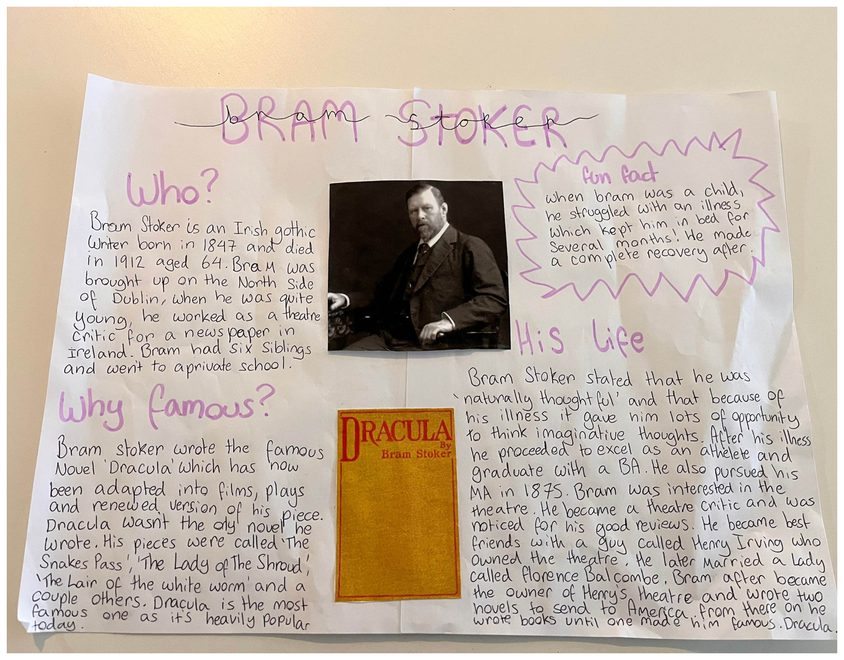 BRAM STOKER
bram stoker
Who?
Bram Stoker is an Irish gothic
Writer born in 1847 and died
in 1912 aged 64. Bram was
brought up on the North Side
of Dublin, when he was quite
young, he worked as a theatre
critic for a newspaper in
Ireland. Bram had six siblings
and went to a private school.
Why famous?
Bram stoker wrote the famous
Novel 'Dracula' which has now
been adapted into films, plays
and renewed version of his piece.
Dracula wasn't the only novel he
wrote. His pieces were called 'The
Snakes Pass', 'The Lady of The Shroud',
'The Lair of the white worm' and a
couple others. Dracula is the most
famous one as it's heavily popular
today.
DRACULA
By
Bram Stoker
fun fact
when bram was a child,
he struggled with an illness
which kept him in bed for
several months! He made
a complete recovery after.
His life
Bram Stoker stated that he was
'naturally thoughtful' and that because of
his illness it gave him lots of opportunity
to think imaginative thoughts. After his illness
he proceeded to excel as an athelete and
graduate with a BA. He also pursued his
MA in 1875. Bram was interested in the
theatre. He became a theatre critic and was
noticed for his good reviews. He became best
friends with a guy called Henry Irving who
owned the theatre. He later married a lady
called Florence Balcombe. Bram after became
the owner of Henry's theatre and wrote two
novels to send to America from there on he
wrote books until one made him famous. Dracula.